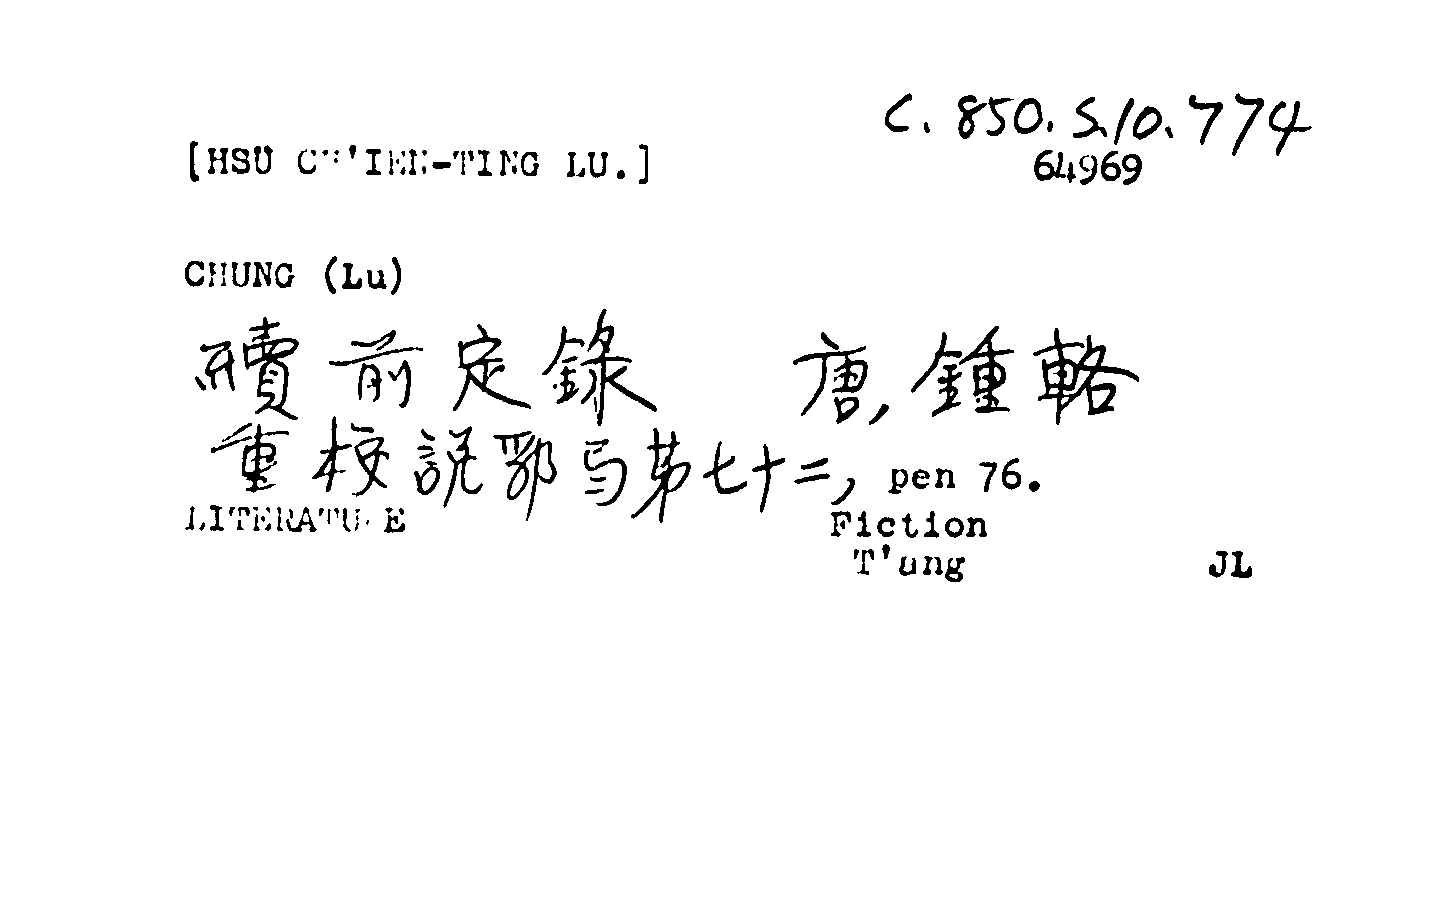 C. 850. S.10. 774
[HSU CH'IEN-TING LU.]
64969
CHUNG (Lu)
續前定錄 唐, 鍾輅
重校說郛弓第七十二, pen 76.
LITERATURE Fiction
T'ang JL